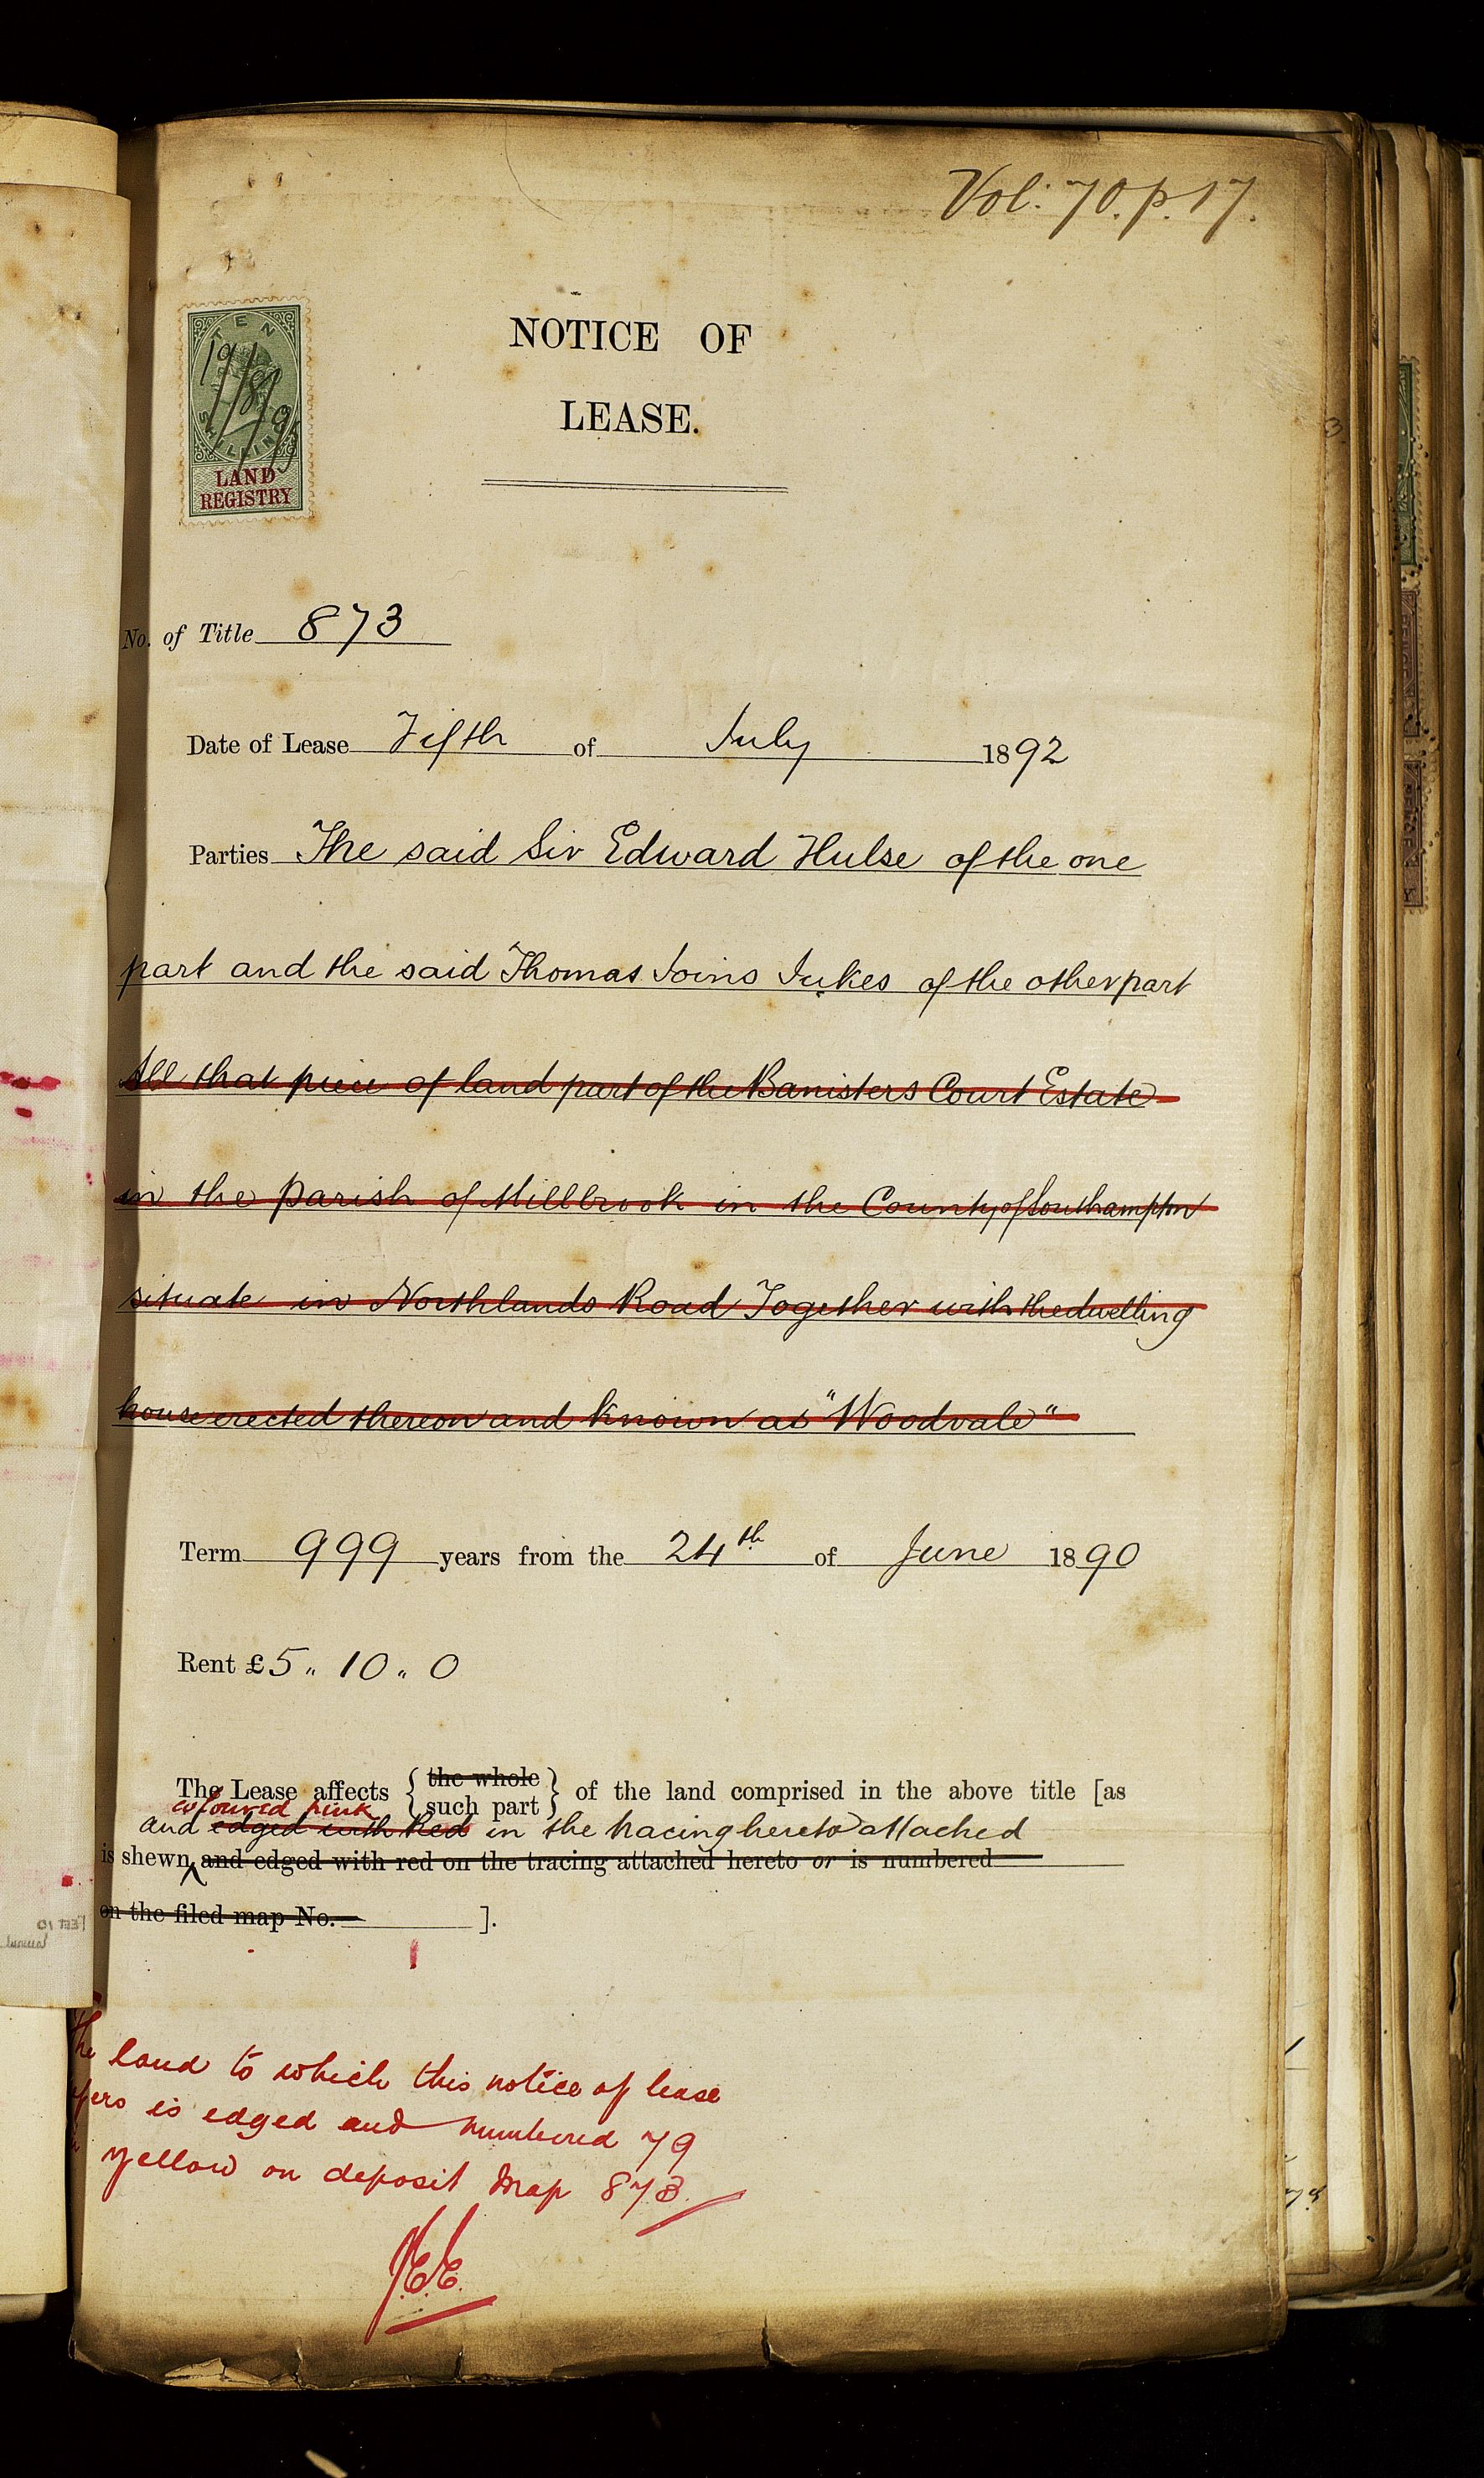 Vol: 70. p. 17.
TEN
SHILLINGS
19/8/95
LAND
REGISTRY
NOTICE OF
LEASE.
No. of Title 873
Date of Lease Fifth of July 1892
Parties The said Sir Edward Hulse of the one
part and the said Thomas Joins Jukes of the other part
All that piece of land part of the Banisters Court Estate
in the Parish of Millbrook in the County of Southampton
situate in Northlands Road Together with the dwelling
house erected thereon and known as "Woodvale"
Term 999 years from the 24th of June 1890
Rent £5 " 10 " 0
The Lease affects { the whole
such part } of the land comprised in the above title [as
coloured pink
and edged with Red in the tracing hereto attached
is shewn and edged with red on the tracing attached hereto or is numbered
on the filed map No. ].
The land to which this notice of lease
fers is edged and numbered 79
yellow on deposit Map 873.